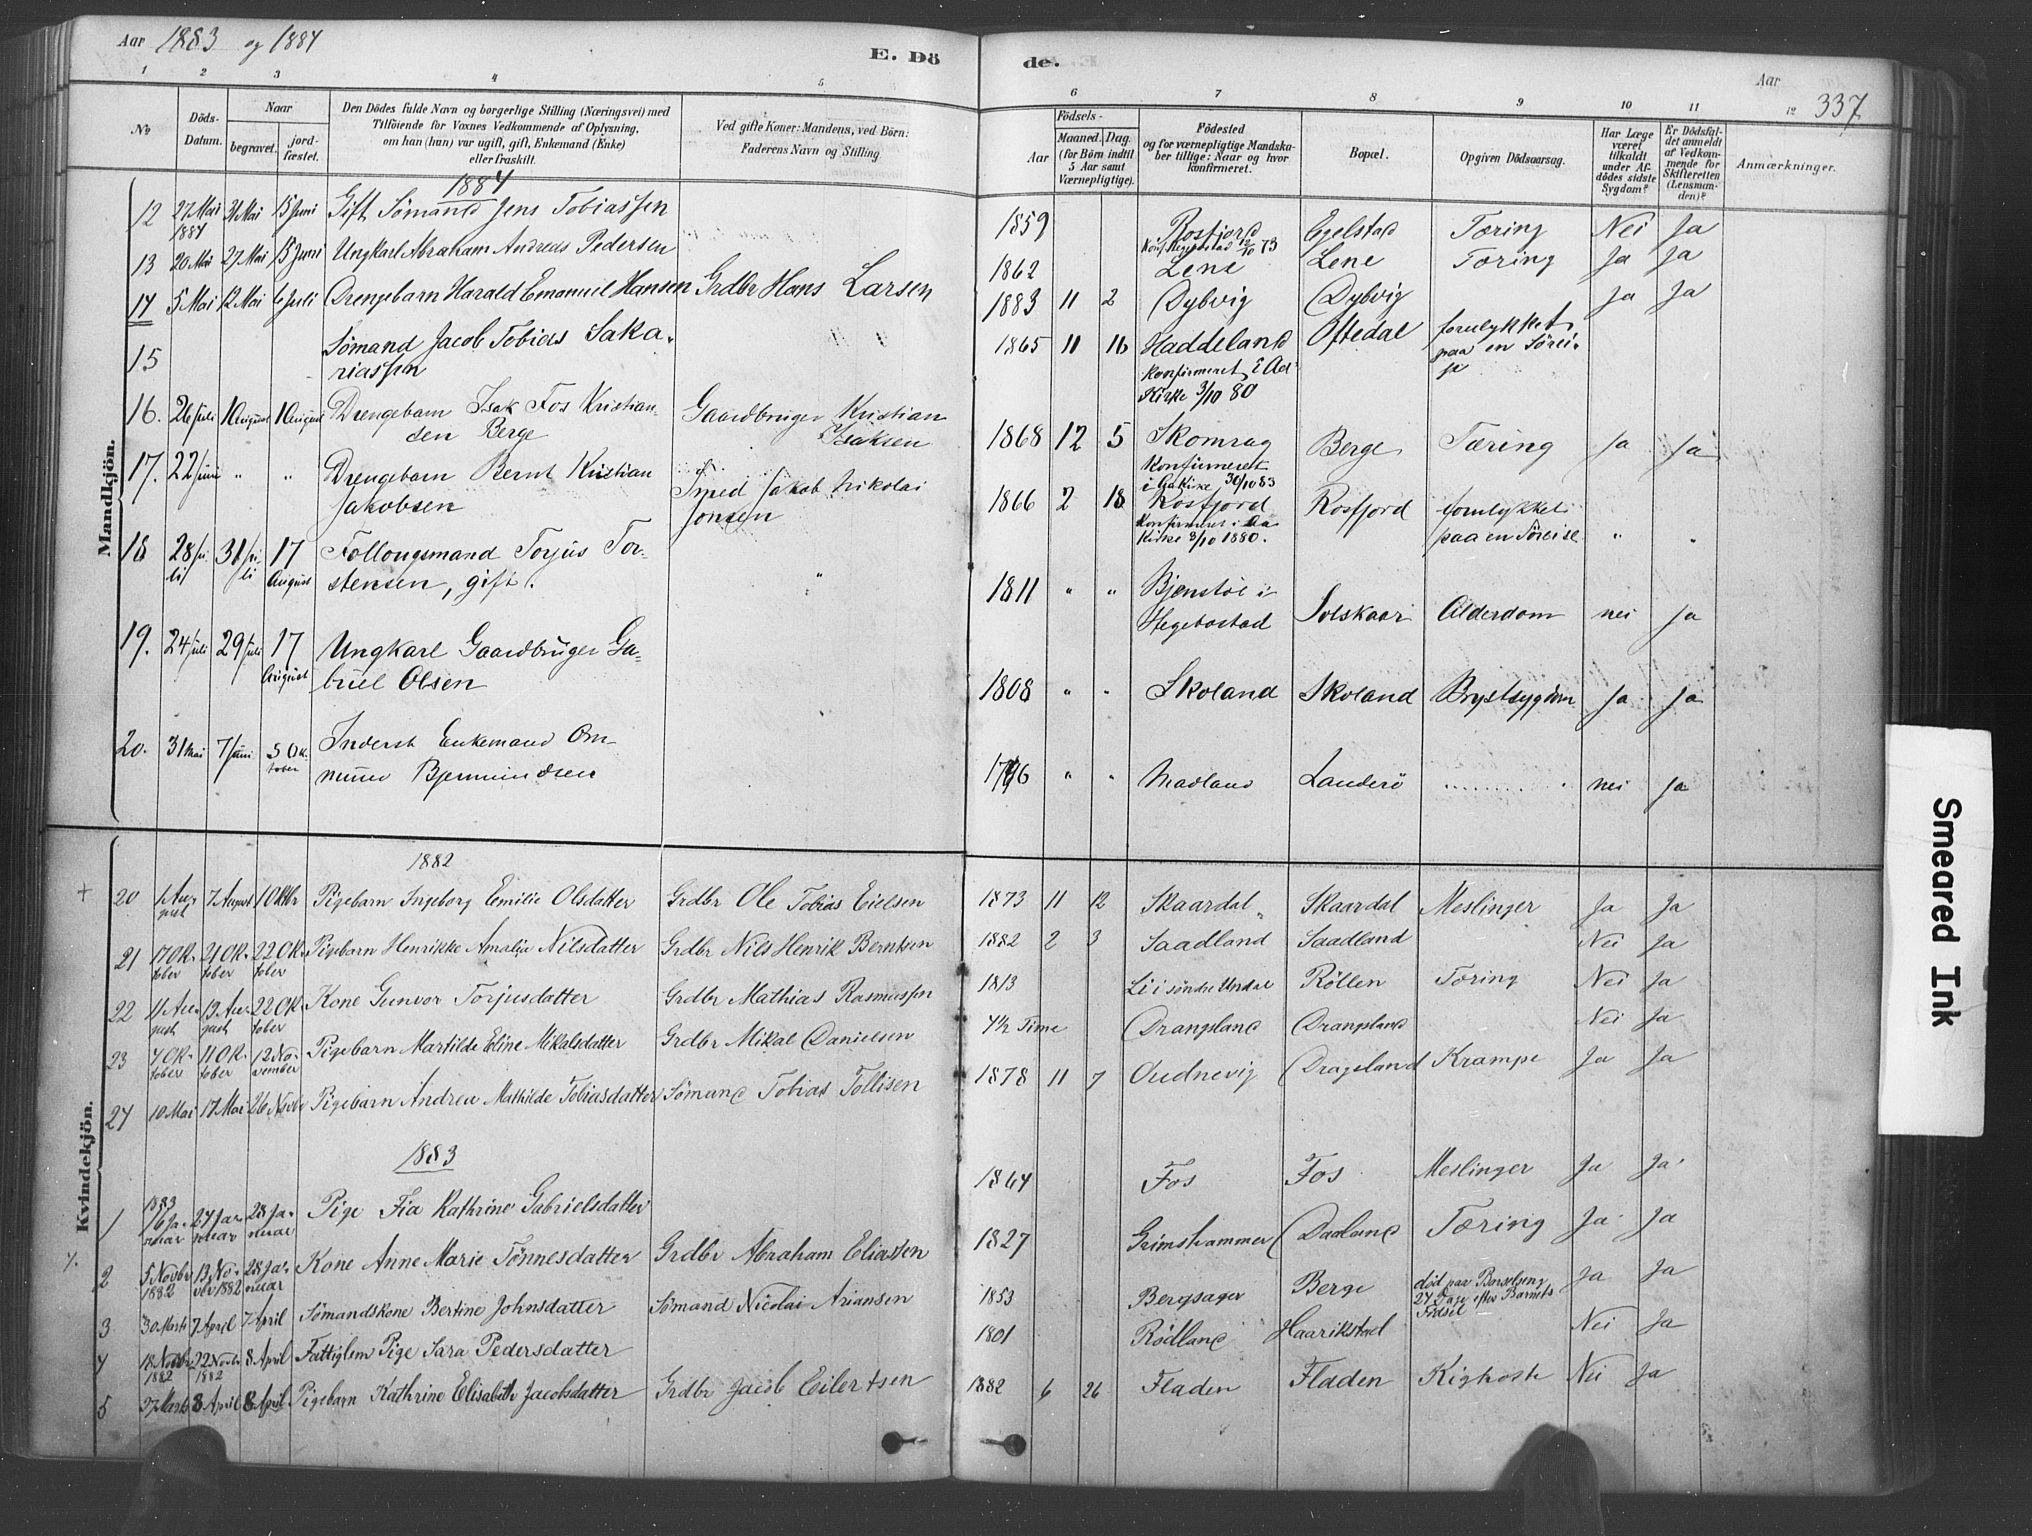 Aar 1883 og 1884
E. Dö
de.
Aar
337
1 2 3 4 5
6 7 8 9 10 11 12
No
Döds-
Datum.
Naar
begravet.
jord-
fæstet.
Den Dödes fulde Navn og borgerlige Stilling (Næringsvei) med
Tilföiende for Voxnes Vedkommende af Oplysning,
om han (hun) var ugift, gift, Enkemand (Enke)
eller fraskilt.
Ved gifte Koner: Mandens, ved Börn:
Faderens Navn og Stilling
Födsels-
Aar
Maaned. Dag.
(for Börn indtil
5 Aar samt
Værnepligtige).
Födested
og for værnepligtige Mandska-
ber tillige: Naar og hvor
konfirmeret.
Bopæl.
Opgiven Dödsaarsag.
Har Læge
været
tilkaldt
under Af-
dödes sidste
Sygdom?
Er Dödsfal-
det anmeldt
af Vedkom-
mende for
Skifteretten
(Lensman-
den)?
Anmærkninger.
Mandkjön.
1884
12 27 Mai 1884 31 Mai 15 Juni Gift Sömand Jens Tobiassen 1859 Rosfjord Egelstad Tæring Nei Ja
13 20 Mai 27 Mai 15 Juni Ungkarl Abraham Andreas Pedersen 1862 Lene Lene Tæring Ja Ja
14 5 Mai 12 Mai 6 Juli Drengebarn Harald Emanuel Hansen Grdbr Hans Larsen 1883 11 2 Dybvig Dybvig Ja Ja
15 Sömand Jacob Tobias Saka- 1865 11 16 Haddeland Oftedal forulykket
riassen paa en Sörei-
se
konfirmeret i Aa
Kirke 3/10 80
16. 26 Juli 1 August 1 August Drengebarn Isak Fos Kristian- Gaardbruger Kristian
sen Berge Isaksen 1868 12 5 Skomrag Berge Tæring Ja Ja
konfirmeret
i Aa Kirke 30/10 83
17. 22 Juni " " Drengebarn Bernt Kristian Smed Jakob Nikolai
Jakobsen Jonsen 1866 2 18 Rosfjord Rosfjord forulykket
konfirmeret i Aa
Kirke 3/10 1880. paa en Söreise " "
18 28 Ju- 31 Ju- 17 Follougsmand Torjus Tor-
li li August stensen, gift. " 1811 " " Bjenstöl i
Hegebostad Solskaar Alderdom nei Ja
19. 24 Juli 29 Juli 17 Ungkarl Gaardbruger Ga-
August briel Olsen 1808 " " Skoland Skoland Brystsygdom Ja Ja
20. 31 Mai 7 Juni 5 Ok- Inderst Enkemand Om-
tober " " Madland Landerö nei Ja
Kvindekjön.
1882
+ 20 1 Au- 7 August 1 Oktbr Pigebarn Ingeborg Emilie Olsdatter Grdbr Ole Tobias Eielsen 1873 11 12 Skaardal Skaardal Meslinger Ja Ja
gust
21 17 Ok- 21 Ok- 22 Ok- Pigebarn Henrikke Amalia Nilsdatter Grdbr Nils Henrik Berntsen 1882 2 3 Saadland Saadland Nei Ja
tober tober tober
22 11 Au- 19 Au- 22 Ok- Kone Gunvor Torjusdatter Grdbr Mathias Rasmussen 1813 Li i söndre Undal Röllen Tæring Nei Ja
gust gust tober
23 7 Ok- 11 Ok- 12 No- Pigebarn Martilde Eline Mikalsdatter Grdbr Mikal Danielsen 4½ Time Drangsland Drangsland Nei Ja
tober tober vember
24 10 Mai 17 Mai 26 Novbr Pigebarn Andrea Mathilde Tobiasdatter Sömand Tobias Tollisen 1878 11 7 Oudnevig Drageland Krampe Ja Ja
1883
1 1883 16 Ja- 24 Ja- 28 Ja- Pige Fia Kathrine Gabrielsdatter 1864 Fos Fos Meslinger Ja Ja
nuar nuar nuar
2 5 Novbr 13 No- 28 Ja- Kone Anne Marie Tönnesdatter Grdbr Abraham Eliassen 1827 Grimshammer Daaland Tæring Ja Ja
1882 vbr 1882 nuar
3 30 Marts 7 April 7 April Sömandskone Bertine Johnsdatter Sömand Nicolai Ariansen 1853 Bergsager Berge död paa Barselseng
27 Dage efter Barnets
Födsel Ja Ja
4 18 Novbr 22 Novbr 8 April Fattiglem Pige Sara Pedersdatter 1801 Rödland Haarikstad Nei Ja
1882 1882
5 27 Marts 8 April 8 April Pigebarn Kathrine Elisabeth Jacobsdatter Grdbr Jacob Eilertsen 1882 6 26 Fladen Fladen Kighoste Nei Ja
Smeared Ink